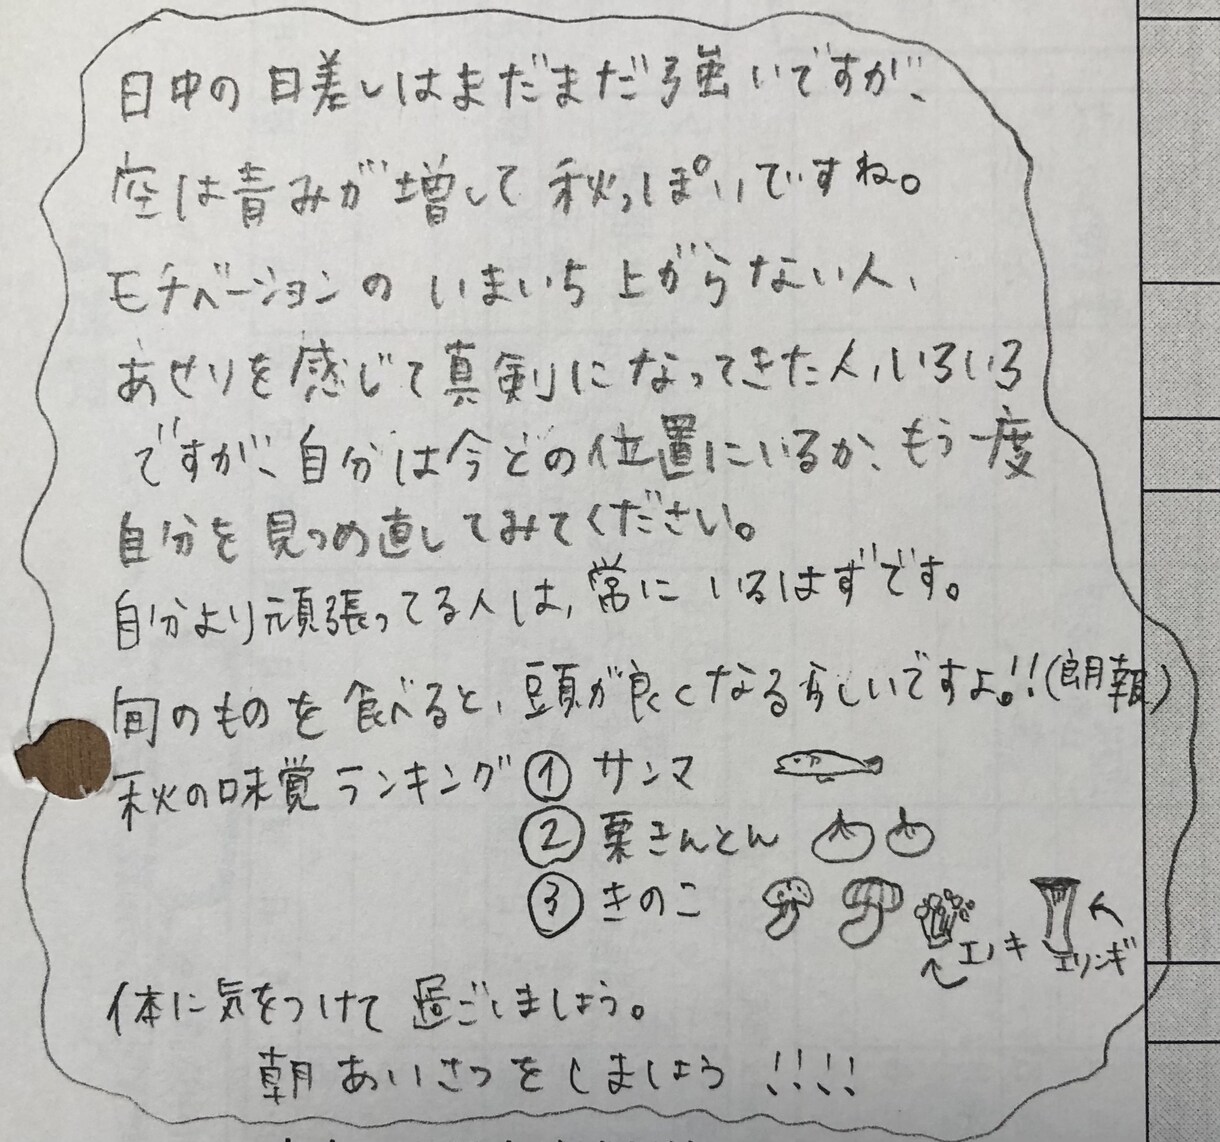 日中の日差しはまだまだ強いですが、
空は青みが増して秋っぽいですね。
モチベーションのいまいち上がらない人、
あせりを感じて真剣になってきた人、いろいろ
ですが、自分は今どの位置にいるか、もう一度
自分を見つめ直してみてください。
自分より頑張ってる人は、常にいるはずです。
旬のものを食べると、頭が良くなるらしいですよ。!!(朗報)
秋の味覚ランキング ① サンマ
② 栗きんとん
③ きのこ
エノキ エリンギ
体に気をつけて過ごしましょう。
朝あいさつをしましょう !!!!